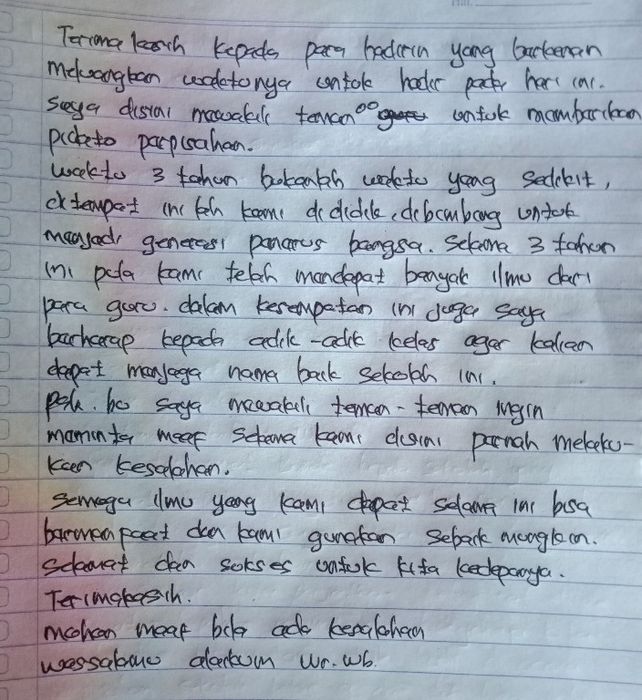 Terima kasih kepada para hadirin yang berkenan
meluangkan waktunya untuk hadir pada hari ini.
saya disini mewakili teman°° untuk memberikan
pidato perpisahan.
waktu 3 tahun bukanlah waktu yang sedikit,
ditempat ini lah kami di didik, dibimbing untuk
menjadi generasi penerus bangsa. Selama 3 tahun
ini pula kami telah mendapat banyak ilmu dari
para guru. dalam kesempatan ini juga saya
berharap kepada adik-adik kelas agar kalian
dapat menjaga nama baik sekolah ini.
pak. bu saya mewakili teman-teman ingin
meminta maaf selama kami disini pernah melaku-
kan kesalahan.
semoga ilmu yang kami dapat selama ini bisa
bermanpaat dan kami gunakan sebaik mungkin.
selamat dan sukses untuk kita kedepanya.
Terimakasih.
mohon maaf bila ada kesalahan
wassalamu alaikum wr. wb.